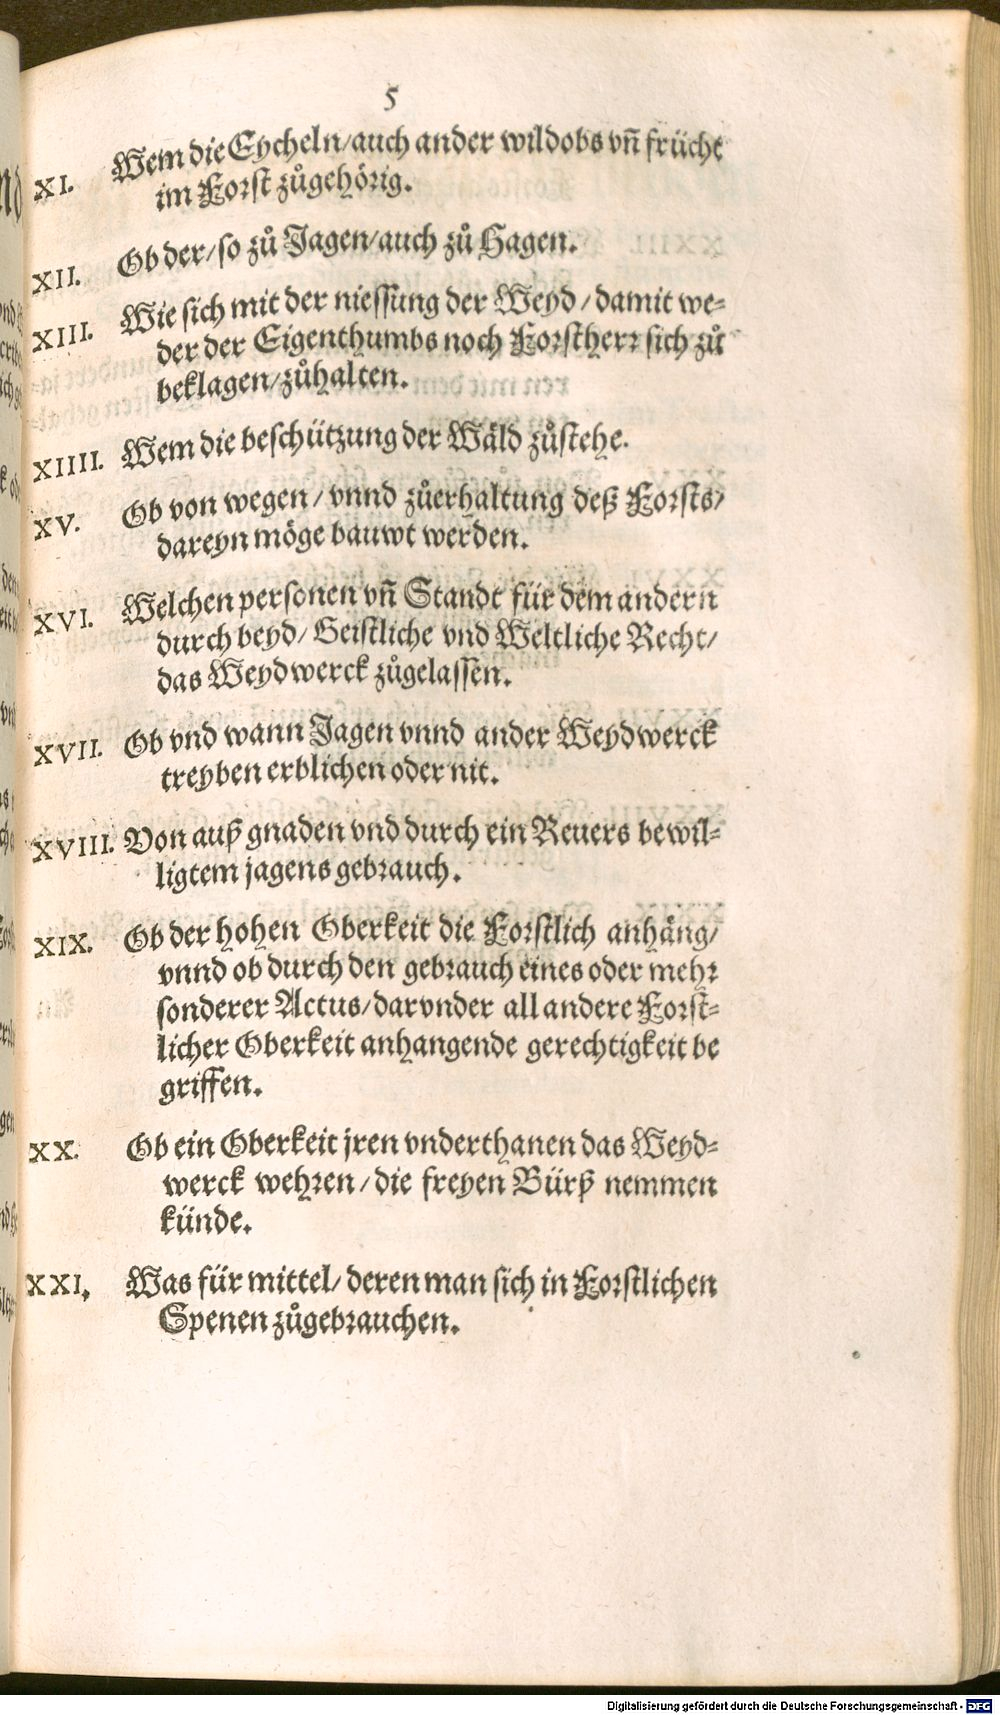 5
XI. Wem die Eycheln/auch ander wildobs vñ frücht
im Forst zůgehörig.
XII. Ob der/so zů Jagen/auch zů Hagen.
XIII. Wie sich mit der niessung der Weyd/damit we-
der der Eigenthumbs noch Forstherr sich zů
beklagen/zůhalten.
XIIII. Wem die beschützung der Wäld zůstehe.
XV. Ob von wegen/vnnd zůerhaltung deß Forsts/
dareyn möge bauwt werden.
XVI. Welchen personen vñ Standt für dem andern
durch beyd/Geistliche vnd Weltliche Recht/
das Weydwerck zůgelassen.
XVII. Ob vnd wann Jagen vnnd ander Weydwerck
treyben erblichen oder nit.
XVIII. Von auß gnaden vnd durch ein Reuers bewil-
ligtem jagens gebrauch.
XIX. Ob der hohen Oberkeit die Forstlich anhäng/
vnnd ob durch den gebrauch eines oder mehr
sonderer Actus/darvnder all andere Forst-
licher Oberkeit anhangende gerechtigkeit be
griffen.
XX. Ob ein Oberkeit jren vnderthanen das Weyd-
werck wehren/die freyen Bürß nemmen
künde.
XXI. Was für mittel/deren man sich in Forstlichen
Spenen zůgebrauchen.
Digitalisierung gefördert durch die Deutsche Forschungsgemeinschaft - DFG